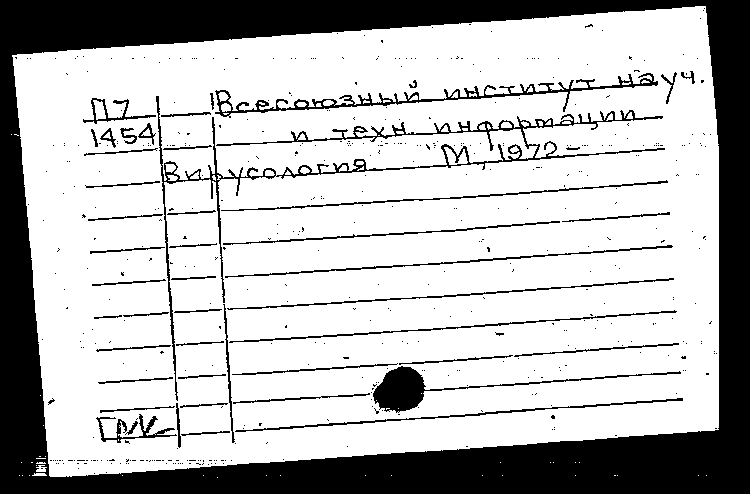 П7 Всесоюзный институт науч.
1454 и техн. информации
Вирусология. М., 1972-